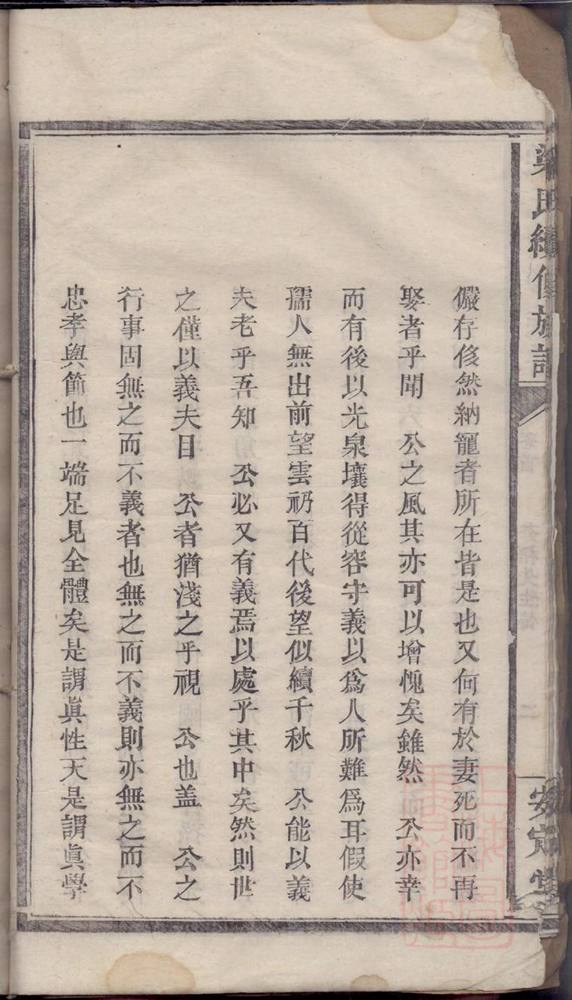 梁氏續修族譜
安定堂
儼存侈然納寵者所在皆是也又何有於妻死而不再
娶者乎聞 公之風其亦可以增愧矣雖然 公亦幸
而有後以光泉壤得從容守義以爲人所難爲耳假使
孺人無出前望雲礽百代後望似續千秋 公能以義
夫老乎吾知 公必又有義焉以處乎其中矣然則世
之僅以義夫目 公者猶淺之乎視 公也蓋 公之
行事固無之而不義者也無之而不義則亦無之而不
忠孝與節也一端足見全體矣是謂眞性天是謂眞學